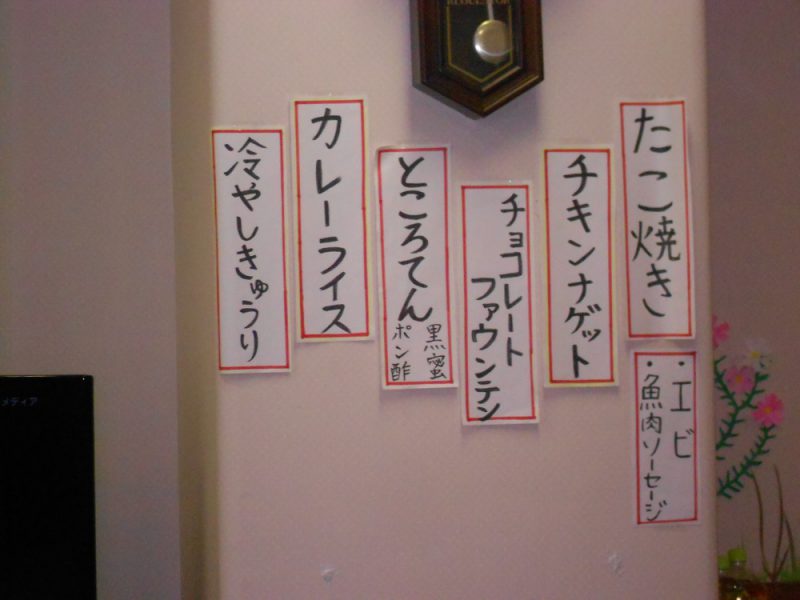 たこ焼き
・エビ
・魚肉ソーセージ
チキンナゲット
チョコレート
ファウンテン
ところてん
黒蜜
ポン酢
カレーライス
冷やしきゅうり
REGULATOR
メディア